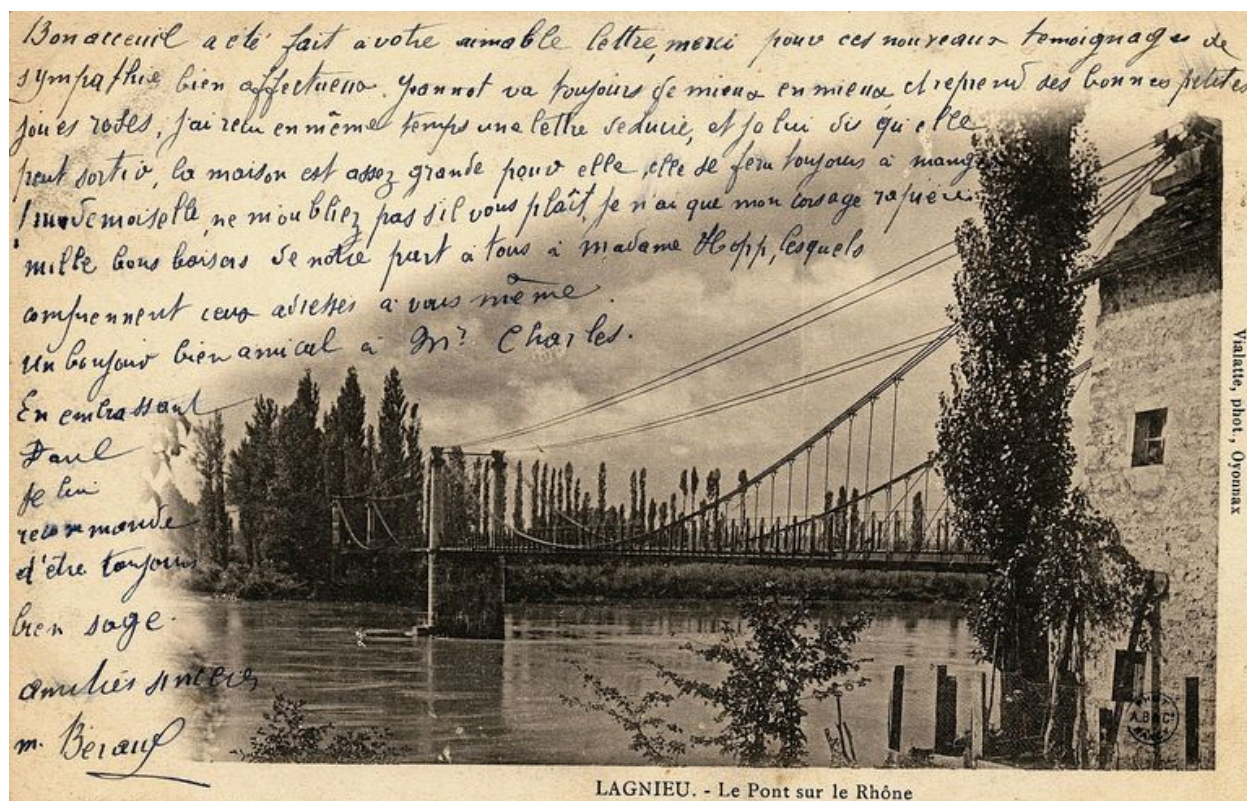 Bon acceuil a été fait à votre aimable lettre, merci pour ces nouveaux temoignages de
sympathie bien affectueux. Jeannot va toujours de mieux en mieux et reprend ses bonnes petites
joues roses, j'ai recu en même temps une lettre de Lucie, et je lui dis qu'elle
peut sortir, la maison est assez grande pour elle, elle se fera toujours à manger
! mademoiselle, ne m'oubliez pas s'il vous plaît, je n'ai que mon corsage rapiécé
mille bons baisers de notre part à tous à madame Hopp, lesquels
comprennent ceux adressés à vous même.
Un bonjour bien amical à Mr Charles.
En embrassant
Paul
je lui
recommande
d'être toujours
bien sage.
amitiés sincères
m. Beraud
Vialatte, phot., Oyonnax
LAGNIEU. - Le Pont sur le Rhône